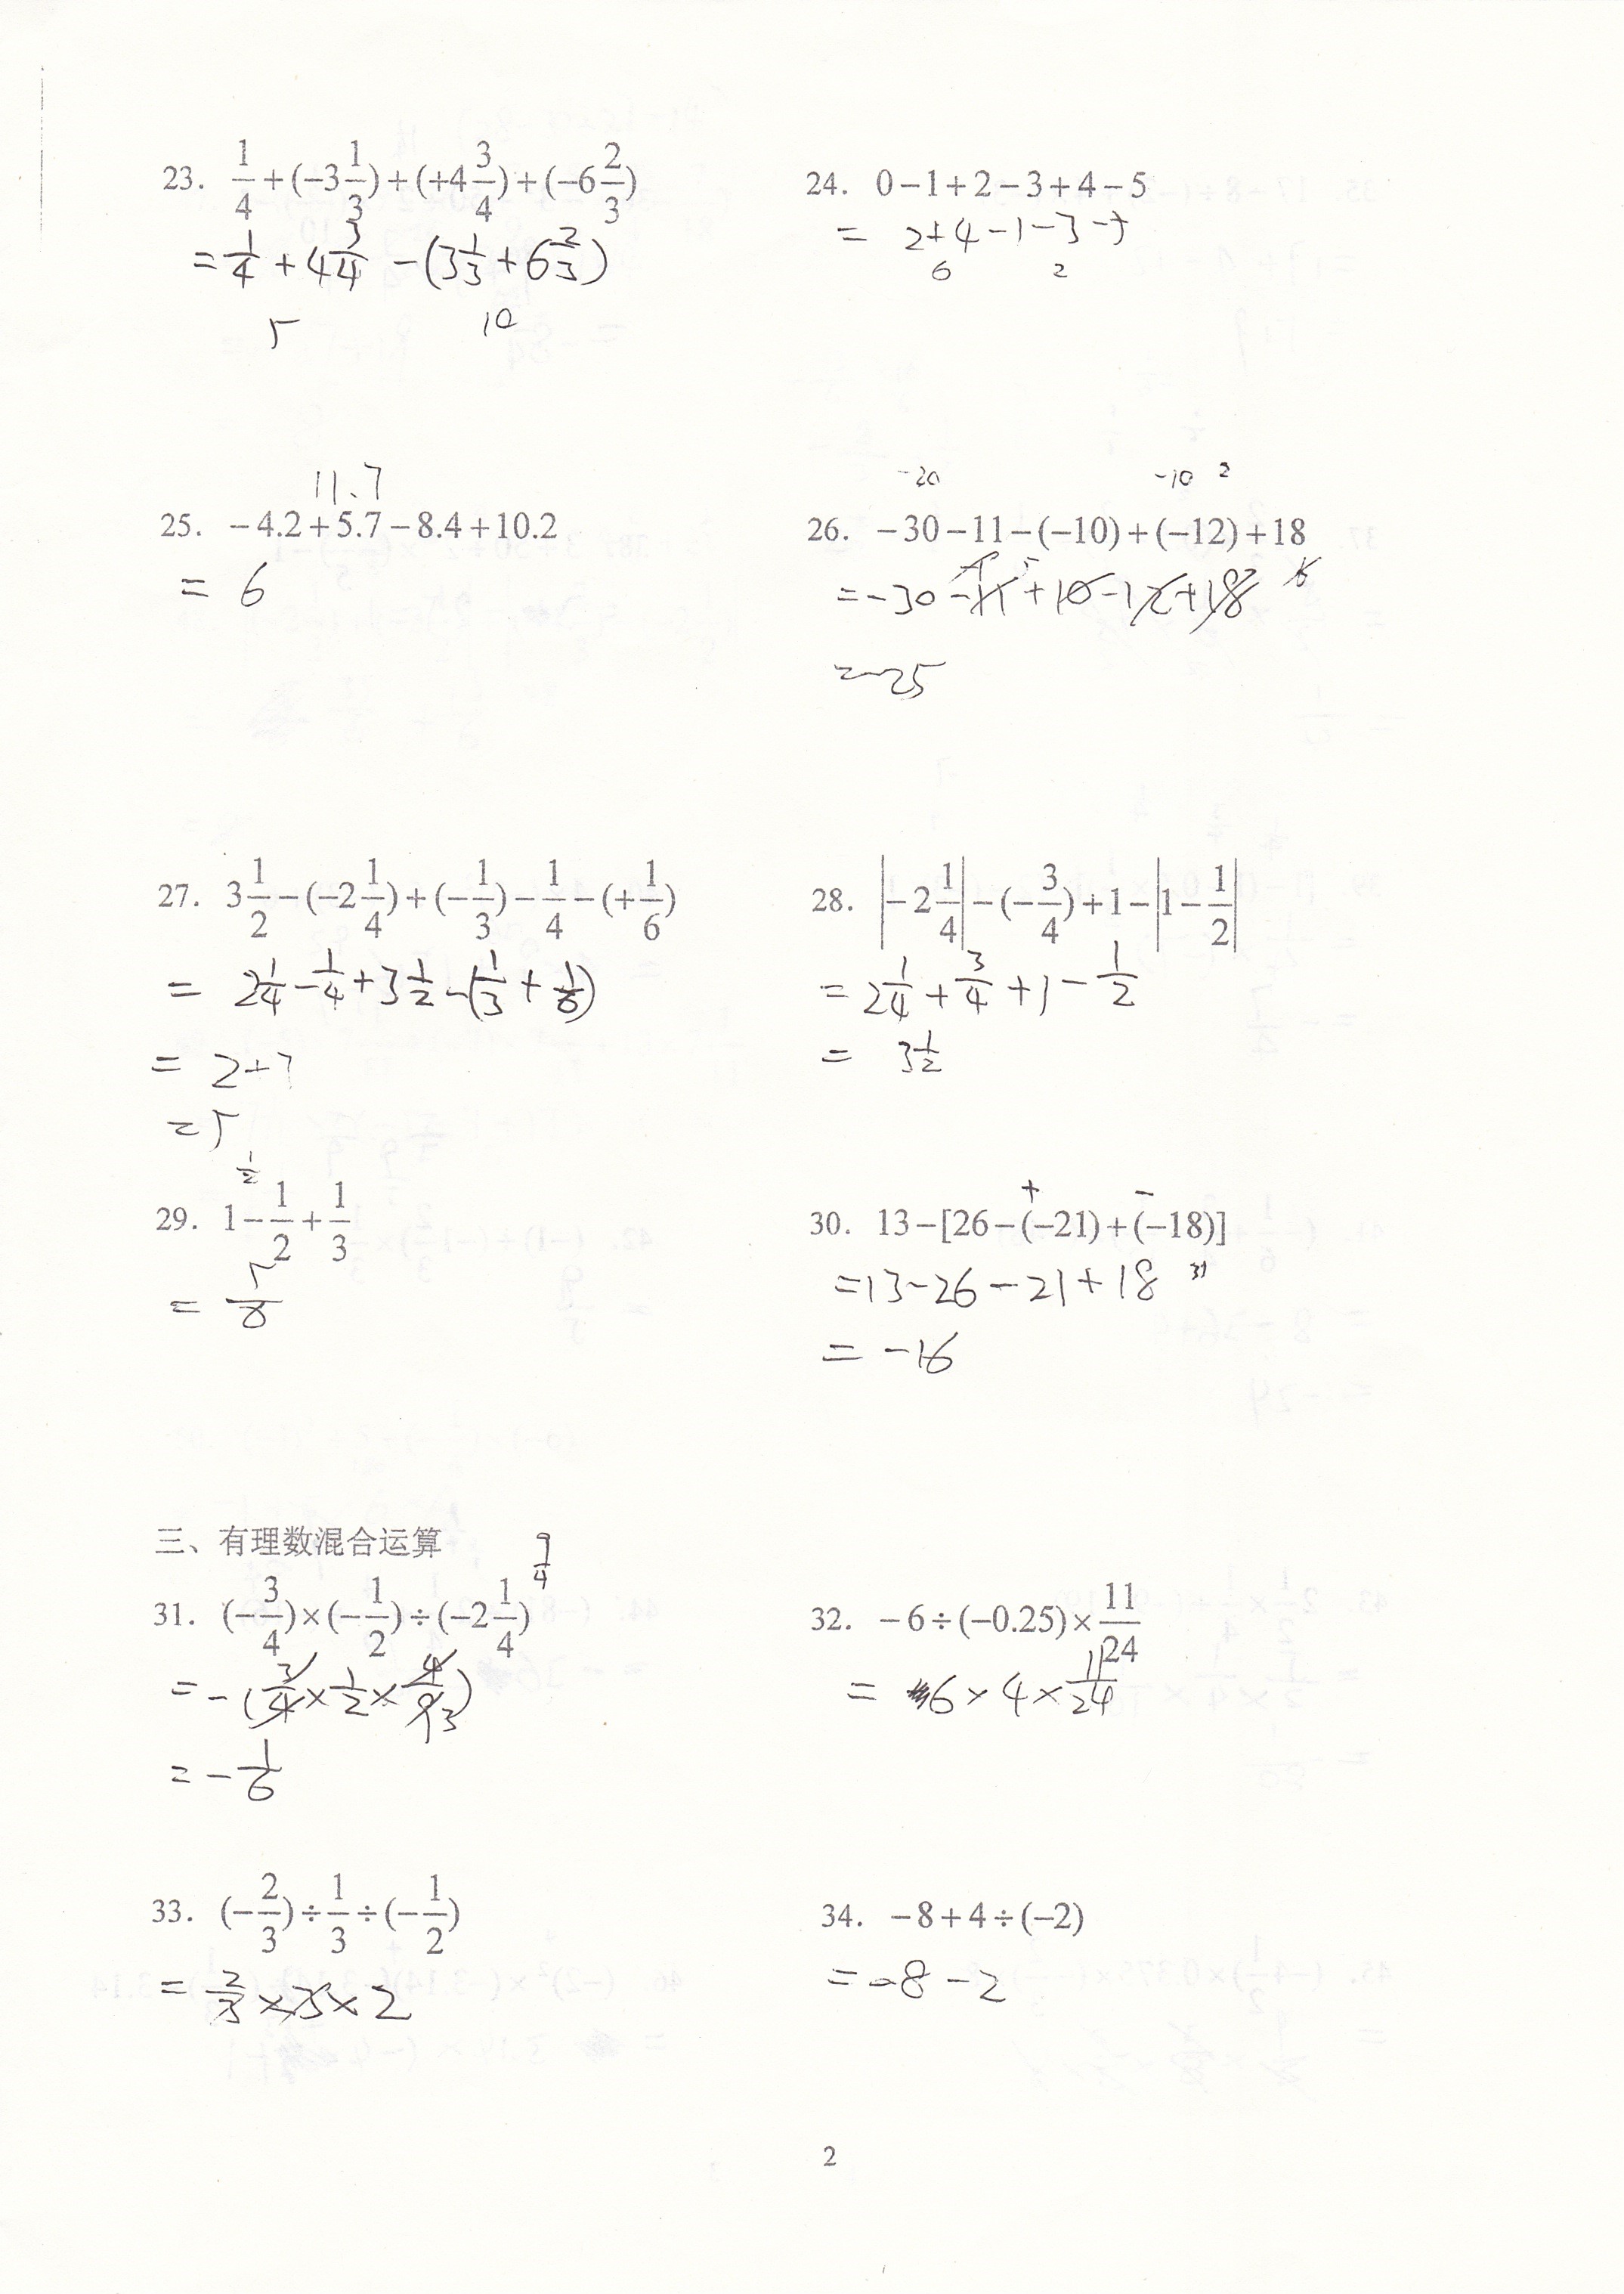 23. 1/4+(−3 1/3)+(+4 3/4)+(−6 2/3)
= 1/4 + 4 3/4 − (3 1/3 + 6 2/3)
5 10
24. 0−1+2−3+4−5
= 2+4−1−3−5
6 2
11.7
25. −4.2+5.7−8.4+10.2
= 6
−20 −10 2
26. −30−11−(−10)+(−12)+18
=−30−11+10−12+18 6
=−25
27. 3 1/2−(−2 1/4)+(−1/3)−1/4−(+1/6)
= 2 1/4 − 1/4 + 3 1/2 − (1/3 + 1/6)
= 2+3
=5
28. |−2 1/4|−(−3/4)+1−|1−1/2|
= 2 1/4 + 3/4 + 1 − 1/2
= 3 1/2
1/2
29. 1−1/2+1/3
= 5/6
+ −
30. 13−[26−(−21)+(−18)]
=13−26−21+18 31
= −16
三、有理数混合运算
9/4
31. (−3/4)×(−1/2)÷(−2 1/4)
= −(3/4×1/2×4/9) 3
= −1/6
32. −6÷(−0.25)×11/24
= 6×4×11/24
33. (−2/3)÷1/3÷(−1/2)
= 2/3×3×2
34. −8+4÷(−2)
=−8−2
2